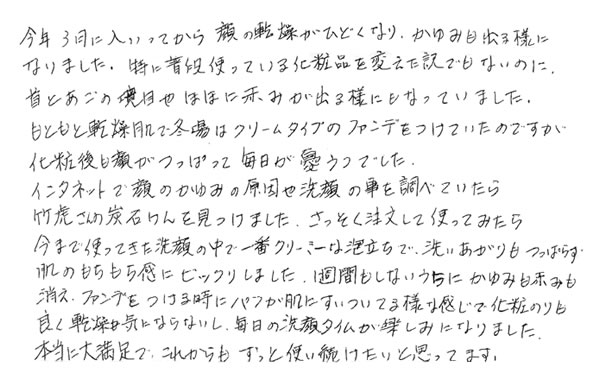 今年3月に入いってから顔の乾燥がひどくなり、かゆみも出る様に
なりました。特に普段使っている化粧品を変えた訳でもないのに、
首とあごの境目やほほに赤みが出る様にもなっていました。
もともと乾燥肌で冬場はクリームタイプのファンデをつけていたのですが
化粧後も顔がつっぱって毎日が憂うつでした。
インタネットで顔のかゆみの原因や洗顔の事を調べていたら
竹虎さんの炭石けんを見つけました。さっそく注文して使ってみたら
今まで使ってきた洗顔の中で一番クリーミーな泡立ちで、洗いあがりもつっぱらず
肌のもちもち感にビックリしました。1週間もしないうちにかゆみも赤みも
消え、ファンデをつける時にパフが肌にすいついてる様な感じで化粧のりも
良く乾燥も気にならないし、毎日の洗顔タイムが楽しみになりました。
本当に大満足で、これからもずっと使い続けたいと思ってます。